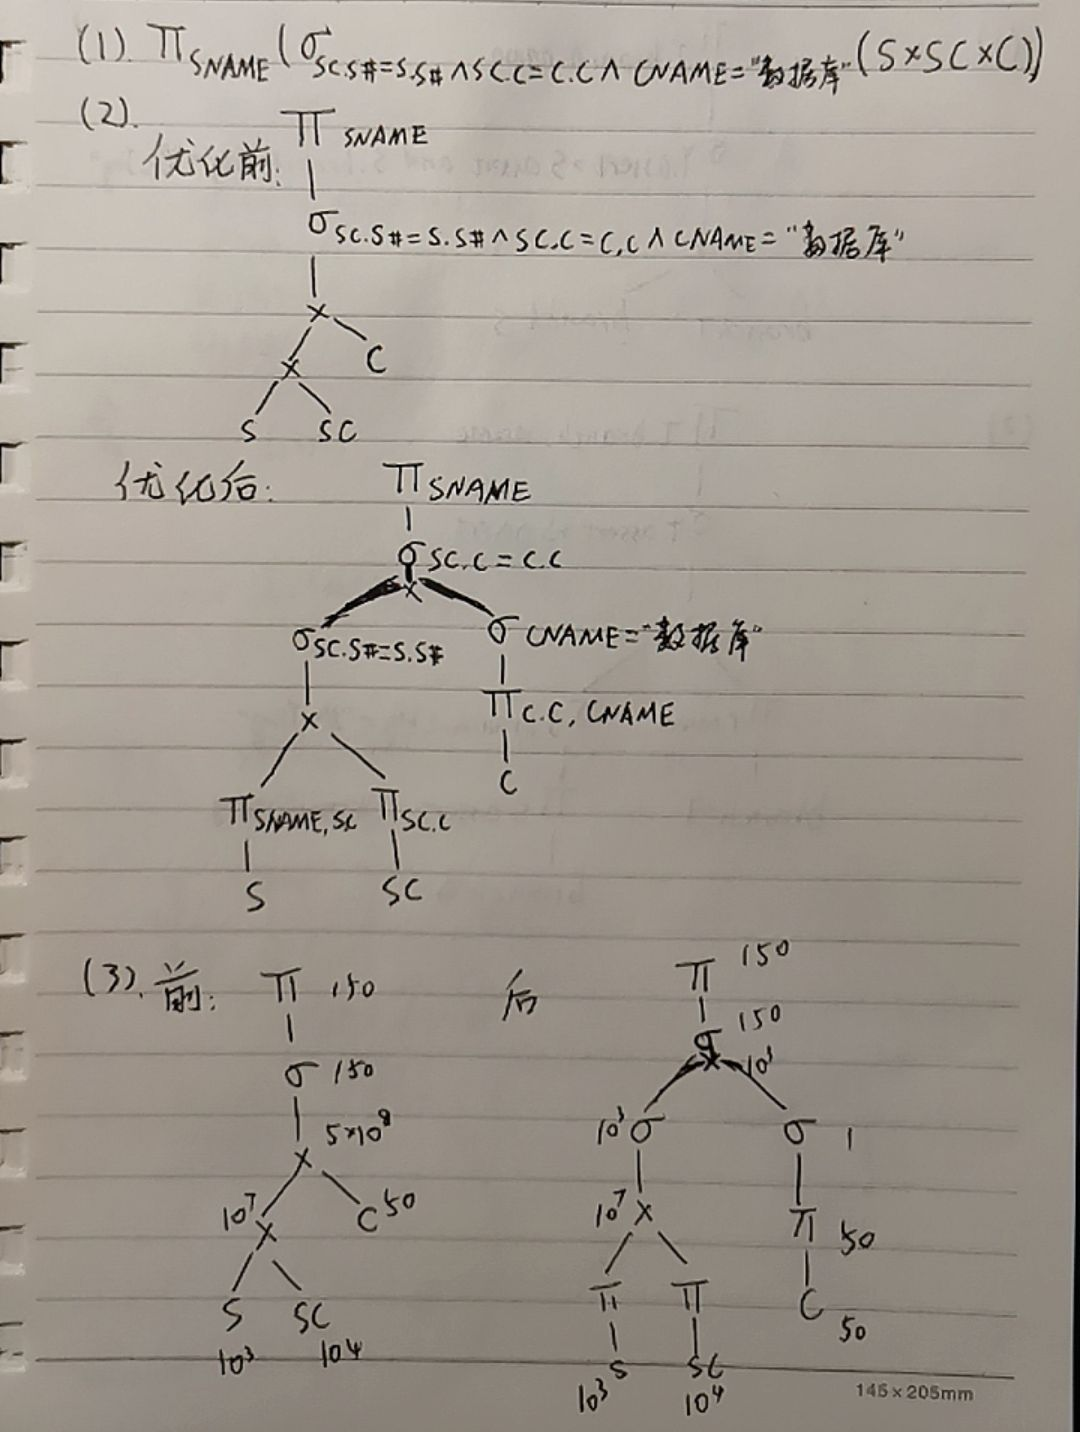 (1). Π SNAME (σ SC.S#=S.S# ∧ SC.C=C.C ∧ CNAME="数据库" (S×SC×C))
(2).
优化前:
Π SNAME
σ SC.S#=S.S# ∧ SC.C=C.C ∧ CNAME="数据库"
×
× C
S SC
优化后:
Π SNAME
σ SC.C=C.C
×
σ SC.S#=S.S# σ CNAME="数据库"
× Π C.C, CNAME
C
Π SNAME, SC Π SC.C
S SC
(3). 前: Π 150 后 Π 150
σ 150 σ 150
× 5×10⁸ × 10³
10⁷ × C 50 10³ σ σ 1
S SC 10⁷ × Π 50
10³ 10⁴ Π Π C 50
S SC
10³ 10⁴
145×205mm